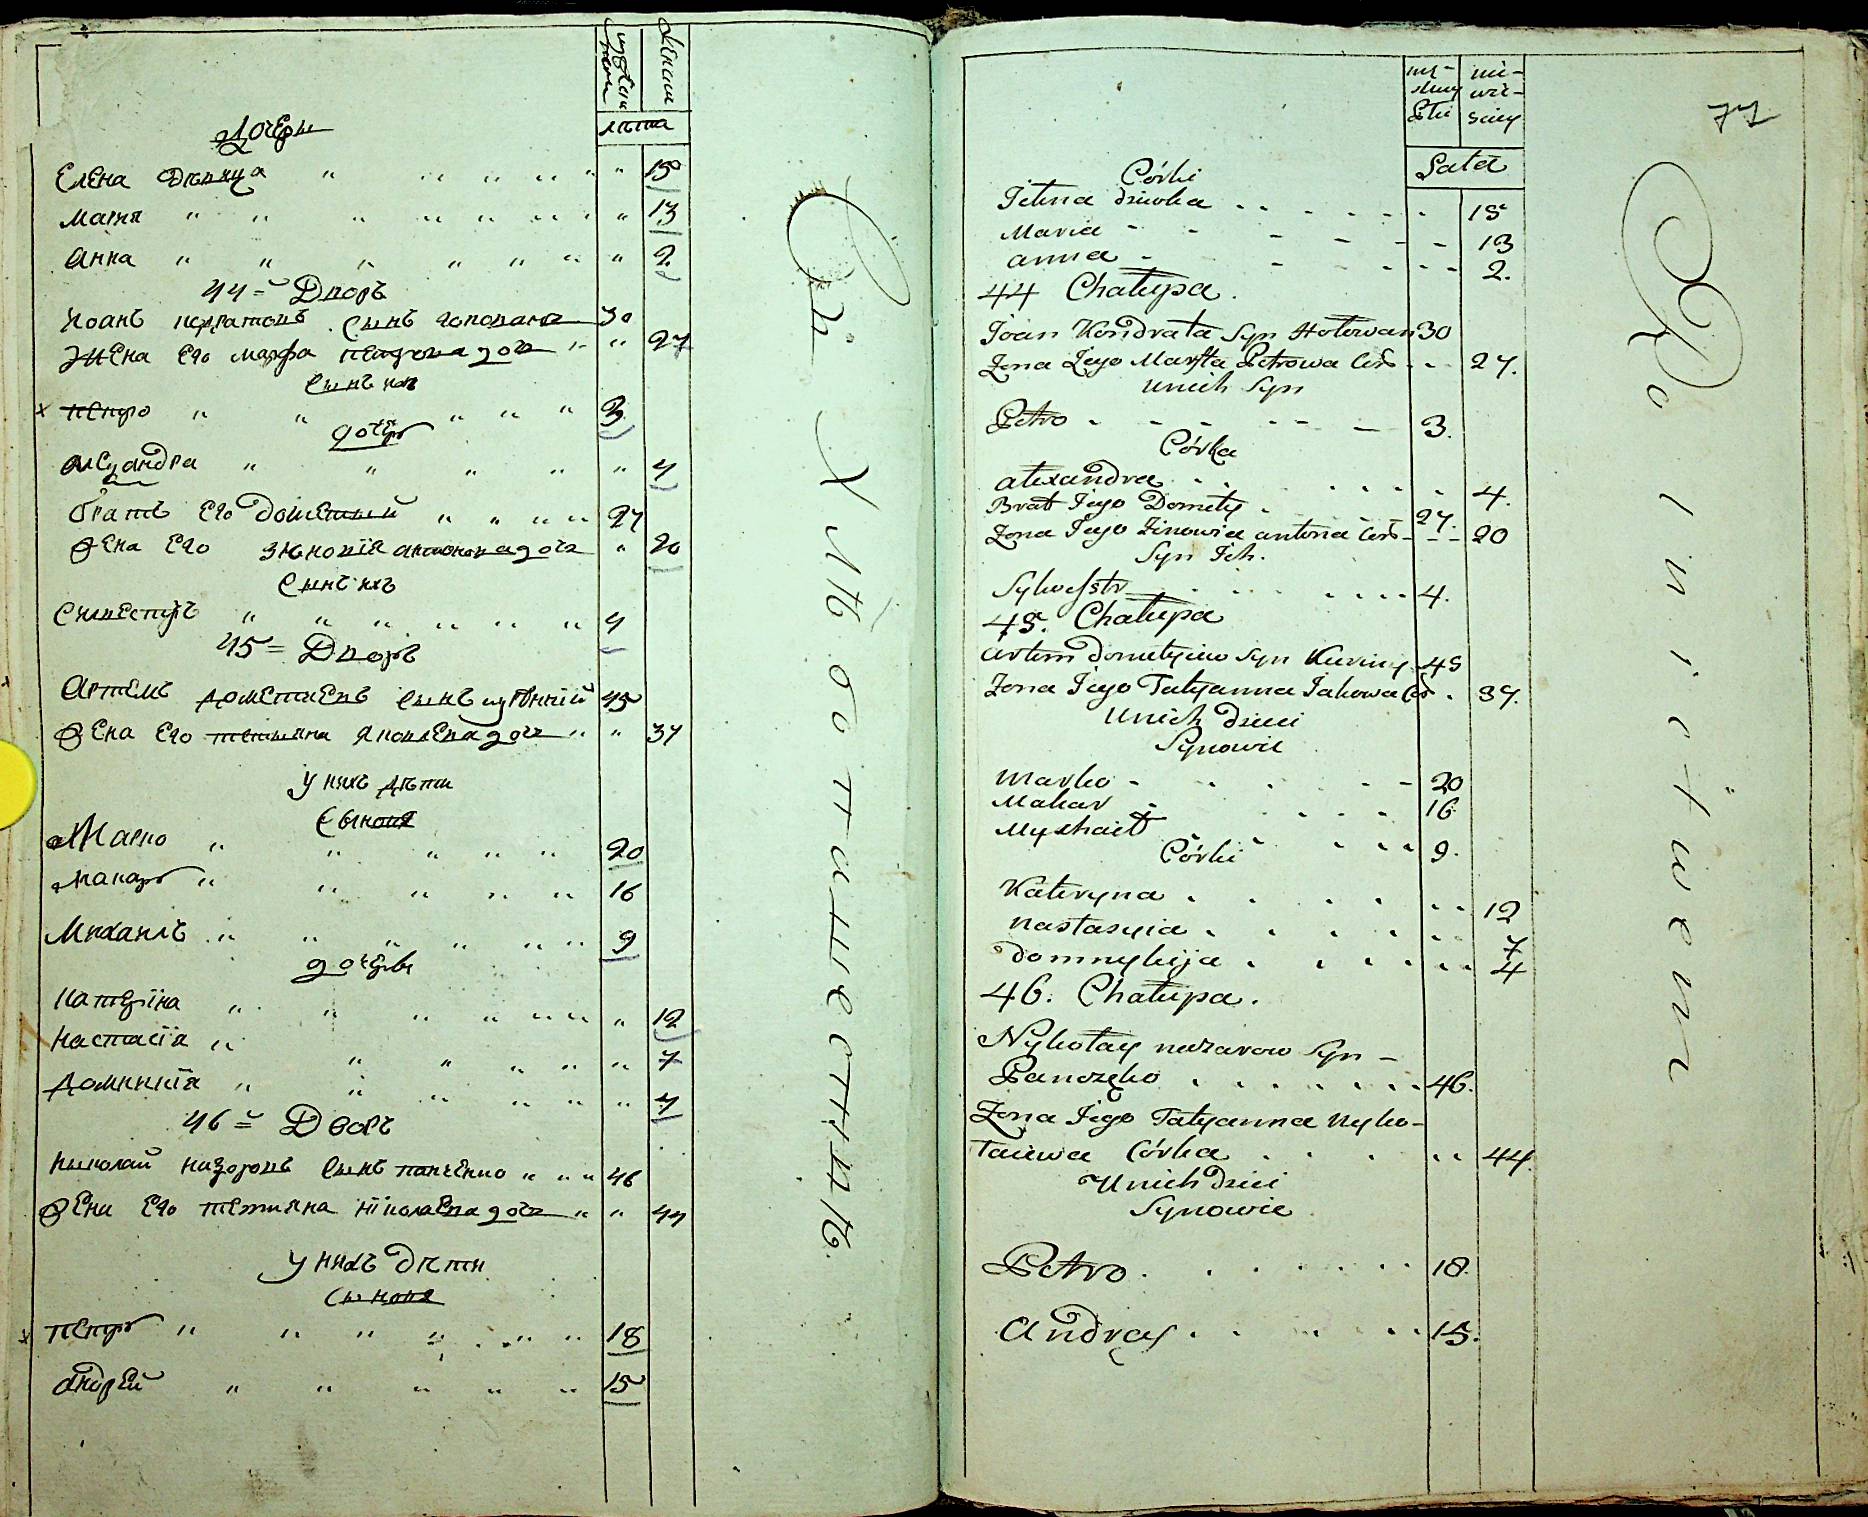 мужеска
женска
лѣта
Дочеры
Елена дѣвица 15
Мария 13
Анна 2
44 = Дворъ
Иоанъ кондратовъ сынъ головань 30
Жена его Марфа петрова дочь 27
сынъ ихъ
Петро 3
дочерь
Александра 4
братъ его Дометый 27
Жена его Зѣновія антонова дочь 20
сынъ ихъ
Силвестръ 4
45 = Дворъ
Артемъ дометиевъ сынъ 45
Жена его татияна яковлева дочь 37
у нихъ дѣти
сыновя
Марко 20
Макаръ 16
Михаилъ 9
дочеры
Катерина 12
Настасіа 7
Домникіа 4
46 = Дворъ
Николай назоровъ сынъ панченко 46
Жена его татияна ніколаева дочь 44
у нихъ дѣти
сыновя
Петръ 18
Андрей 15
Съ Хлѣбопашествѣ.
77
męskiey płci
niewieściey
Lata
Córki
Jelena dziewka 15
Maria 13
anna 2.
44 Chałupa.
Joan Kondrata Syn Hołowan 30
Żona Jego Marfta Petrowa Cór 27.
unich Syn
Petro 3.
Córka
alexandra 4.
Brat Jego Domety 27.
Żona Jego Zinowia antona Cór 20
Syn Ich.
Sylwestr 4.
45. Chałupa
artem Dometyiew Syn 45
Żona Jego Tatyanna Jakowa Cór 37.
Unich dzieci
Synowie
Marko 20
Makar 16
Myxhaił 9.
Córki
Kateryna 12
Nastasyia 7
Domnykija 4
46. Chałupa.
Nykołay nazarow Syn
Panczęko 46.
Żona Jego Tatyanna Nyko-
łaiewa Córka 44.
Unich dzieci
Synowie
Petro 18.
Andrey 15.
Rolnictwem